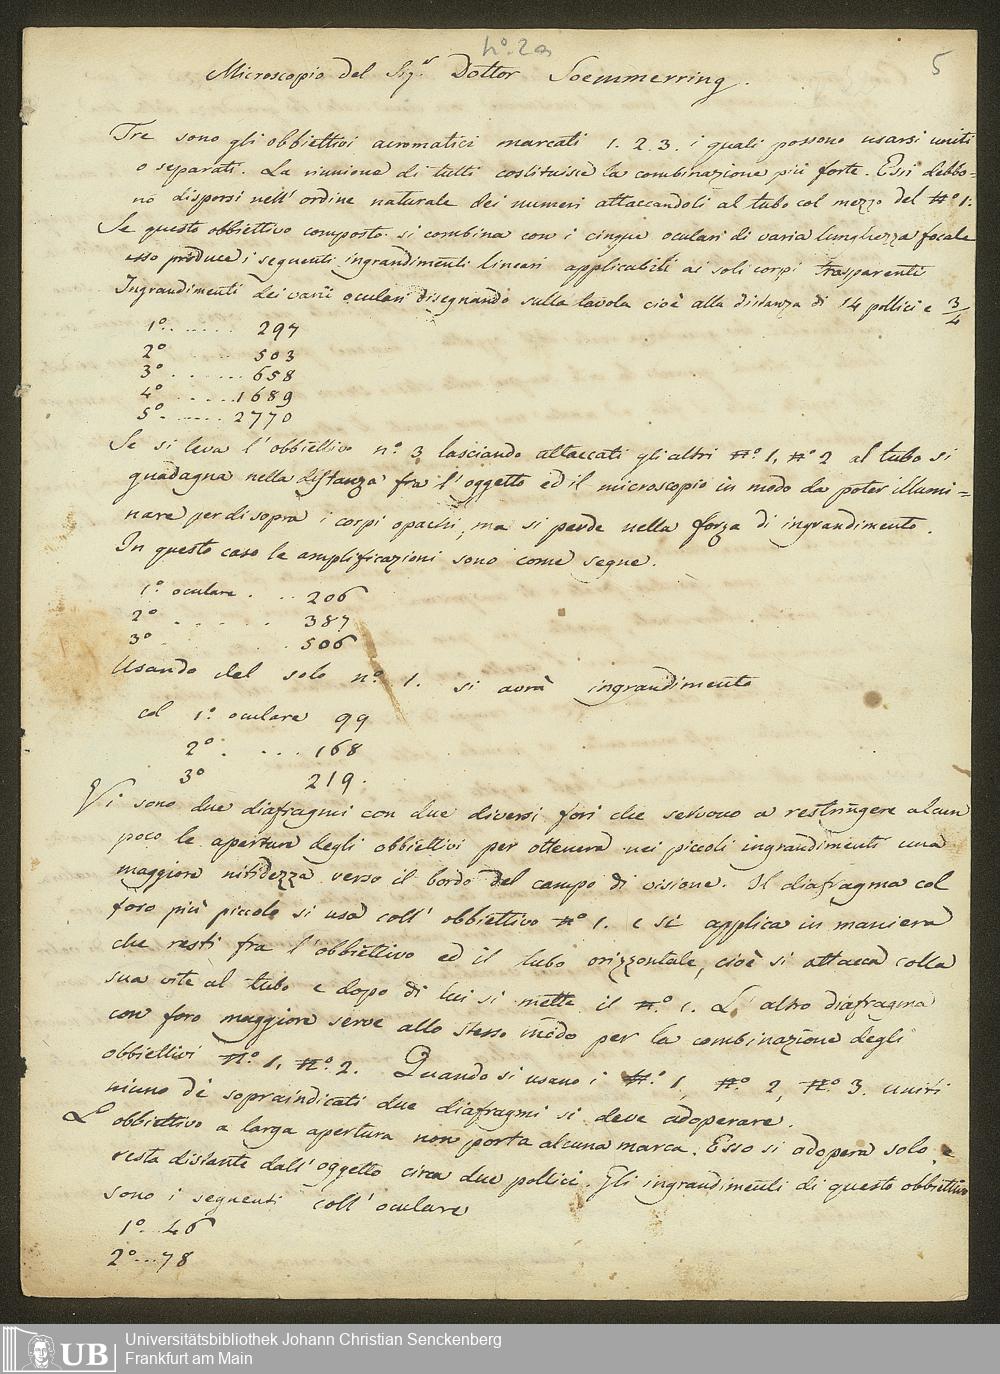 nº. 2a
5
Microscopio del Sig.r Dottor Soemmerring.
Tre sono gli obbiettivi acromatici marcati 1. 2. 3. i quali possono usarsi uniti
o separati. La riunione di tutti costituisce la combinazione più forte. Essi debbo-
no disporsi nell' ordine naturale dei numeri attaccandoli al tubo col mezzo del Nº 1.
Se questo obbiettivo composto si combina con i cinque oculari di varia lunghezza focale
esso produce i seguenti ingrandimenti lineari applicabili ai soli corpi trasparenti
Ingrandimenti dei varii oculari disegnando sulla tavola cioè alla distanza di 14 pollici e 3/4
1º. . . . . . . 297
2º . . . . . 503
3º . . . . . . 658
4º . . . . . 1689
5º. . . . . . 2770
Se si leva l' obbiettivo nº. 3 lasciando attaccati gli altri Nº. 1, Nº 2 al tubo si
guadagna nella distanza fra l' oggetto ed il microscopio in modo da poter illumi=
nare per di sopra i corpi opachi, ma si perde nella forza di ingrandimento.
In questo caso le amplificazioni sono come segue.
1º. oculare . . . 206
2º . . . . . 387
3º . . 506
Usando del solo nº. 1. si avrà ingrandimento
col 1º. oculare 99
2º. . . . . 168
3º 219.
Vi sono due diafragmi con due diversi fori che servono a restringere alcun
poco le aperture degli obbiettivi per ottenere nei piccoli ingrandimenti una
maggiore nitidezza verso il bordo del campo di visione. Il diafragma col
foro più piccolo si usa coll' obbiettivo Nº 1. e si applica in maniera
che resti fra l' obbiettivo ed il tubo orizzontale, cioè si attacca colla
sua vite al tubo e dopo di lui si mette il Nº. 1. L' altro diafragma
con foro maggiore serve allo stesso modo per la combinazione degli
obbiettivi Nº. 1, Nº. 2. Quando si usano i Nº. 1, Nº. 2, Nº. 3. uniti
niuno de' sopraindicati due diafragmi si deve adoperare.
L' obbiettivo a larga apertura non porta alcuna marca. Esso si adopera solo, e
resta distante dall' oggetto circa due pollici. Gli ingrandimenti di questo obbiettivo
sono i seguenti coll' oculare
1º. . . 46
2º . . . 78
UB
Universitätsbibliothek Johann Christian Senckenberg
Frankfurt am Main